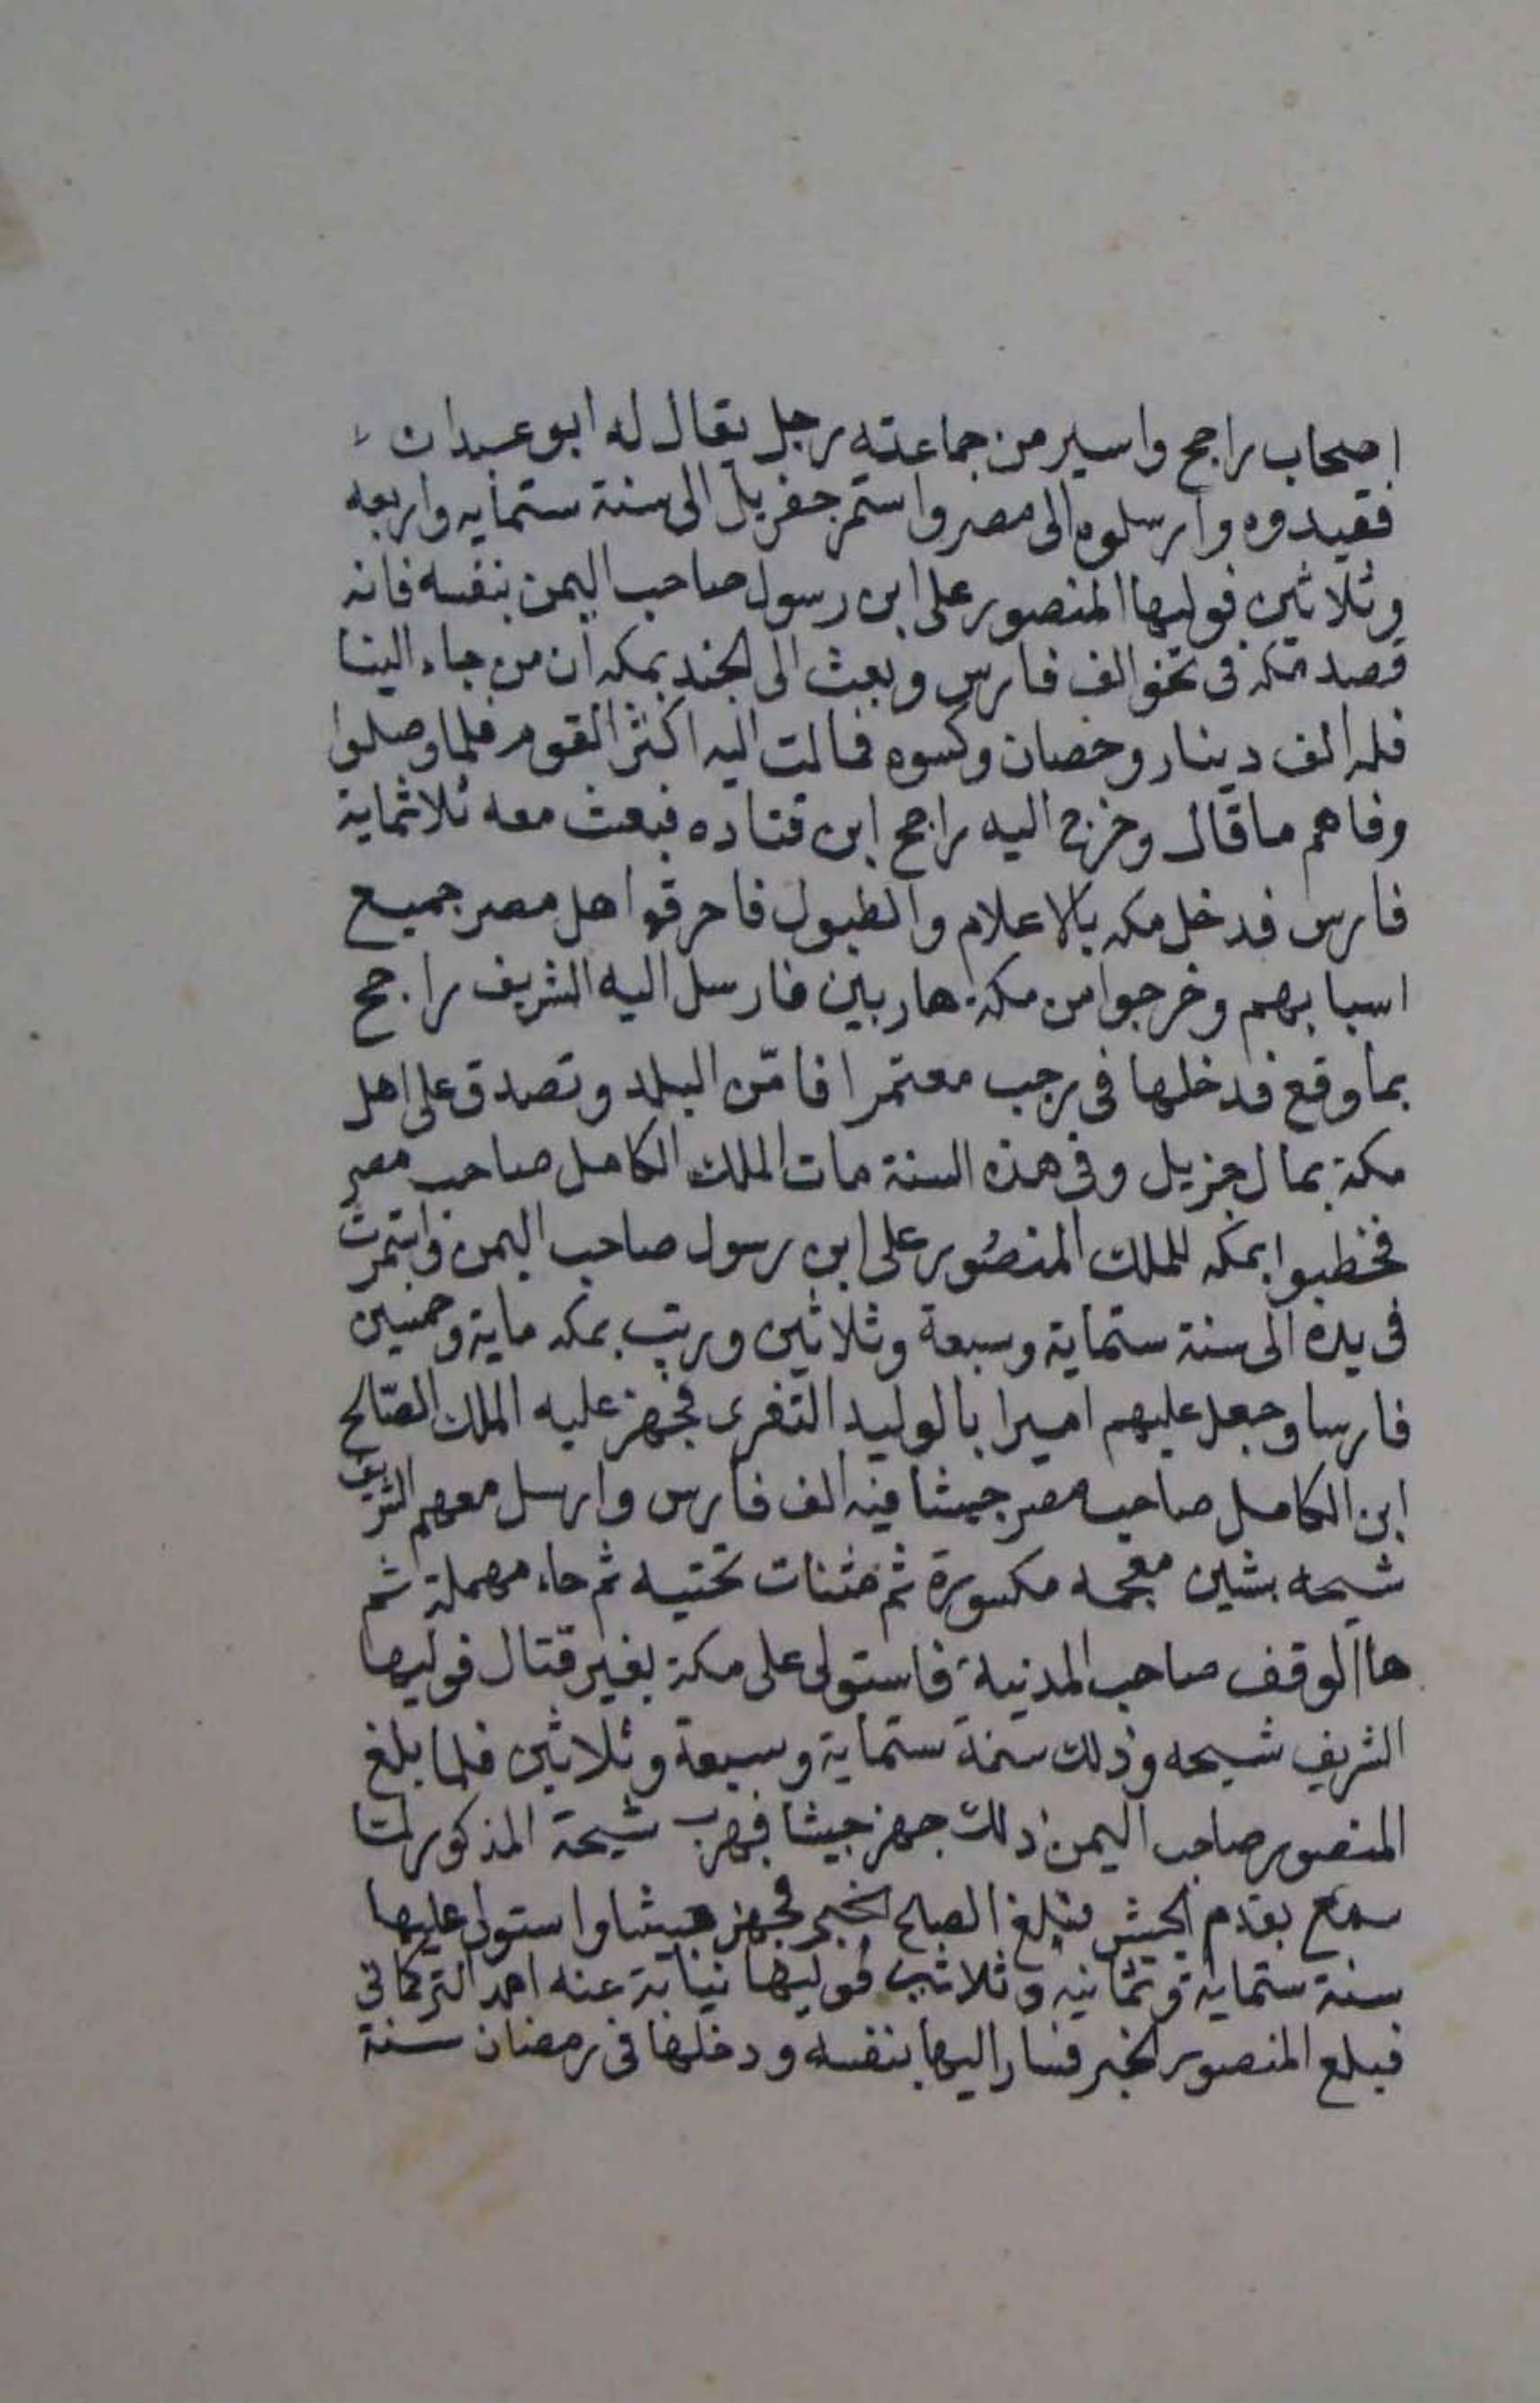 اصحاب راجح واسير من جماعته رجل يقال له ابو عبدان
فقيدوه وارسلوه الى مصر واستمر جفريل الى سنة ستمايه واربعه
وثلاثين فوليها المنصور على ابن رسول صاحب اليمن بنفسه فانه
قصد مكه فى نحو الف فارس وبعث الى الجند بمكه ان من جاء الينا
فله الف دينار وحصان وكسوه فمالت اليه اكثر القوم فلما وصلوا
وفاهم ما قال وخرج اليه راجح ابن قتاده فبعث معه ثلاثماية
فارس فدخل مكه بالاعلام والطبول فاحرقوا اهل مصر جميع
اسبابهم وخرجوا من مكة هاربين فارسل اليه الشريف راجح
بما وقع فدخلها فى رجب معتمرا فامّن البلد وتصدق على اهل
مكة بمال جزيل وفى هذه السنة مات الملك الكامل صاحب مصر
فخطبوا بمكه للملك المنصُور على ابن رسول صاحب اليمن واستمرت
فى يده الى سنة ستماية وسبعة وثلاثين ورتب بمكه ماية وخمسين
فارسا وجعل عليهم اميرا بالوليد التغرى فجهز عليه الملك الصّالح
ابن الكامل صاحب مصر جيشا فيه الف فارس وارسل معهم الشريف
شيحه بشين معجمه مكسورة ثم مثنات تحتيه ثم حاء مهملة ثم
ها الوقف صاحب المدنية فاستولى على مكة بغير قتال فوليها
الشريف شيحه وذلك سنة ستماية وسبعة وثلاثين فلما بلغ
المنصور صاحب اليمن ذلك جهز جيشا فهرب شيحة المذكور لمّا
سمع بقدم الجيش فبلغ الصلح الخبر فجهز جيشا واستولى عليها
سنة ستماية وثمانيه وثلاثين فوليها نيابة عنه احمد التركمانى
فبلع المنصور الخبر فسار اليها بنفسه ودخلها فى رمضان سنة